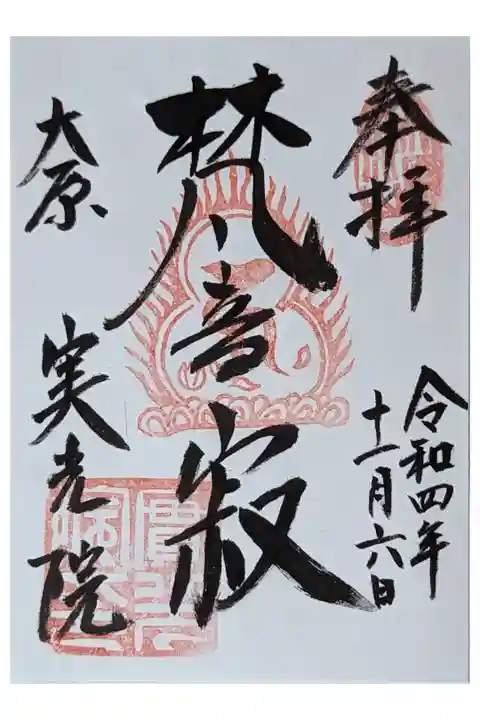 奉拝
令和四年
十一月六日
梵音寂
大原
実光院